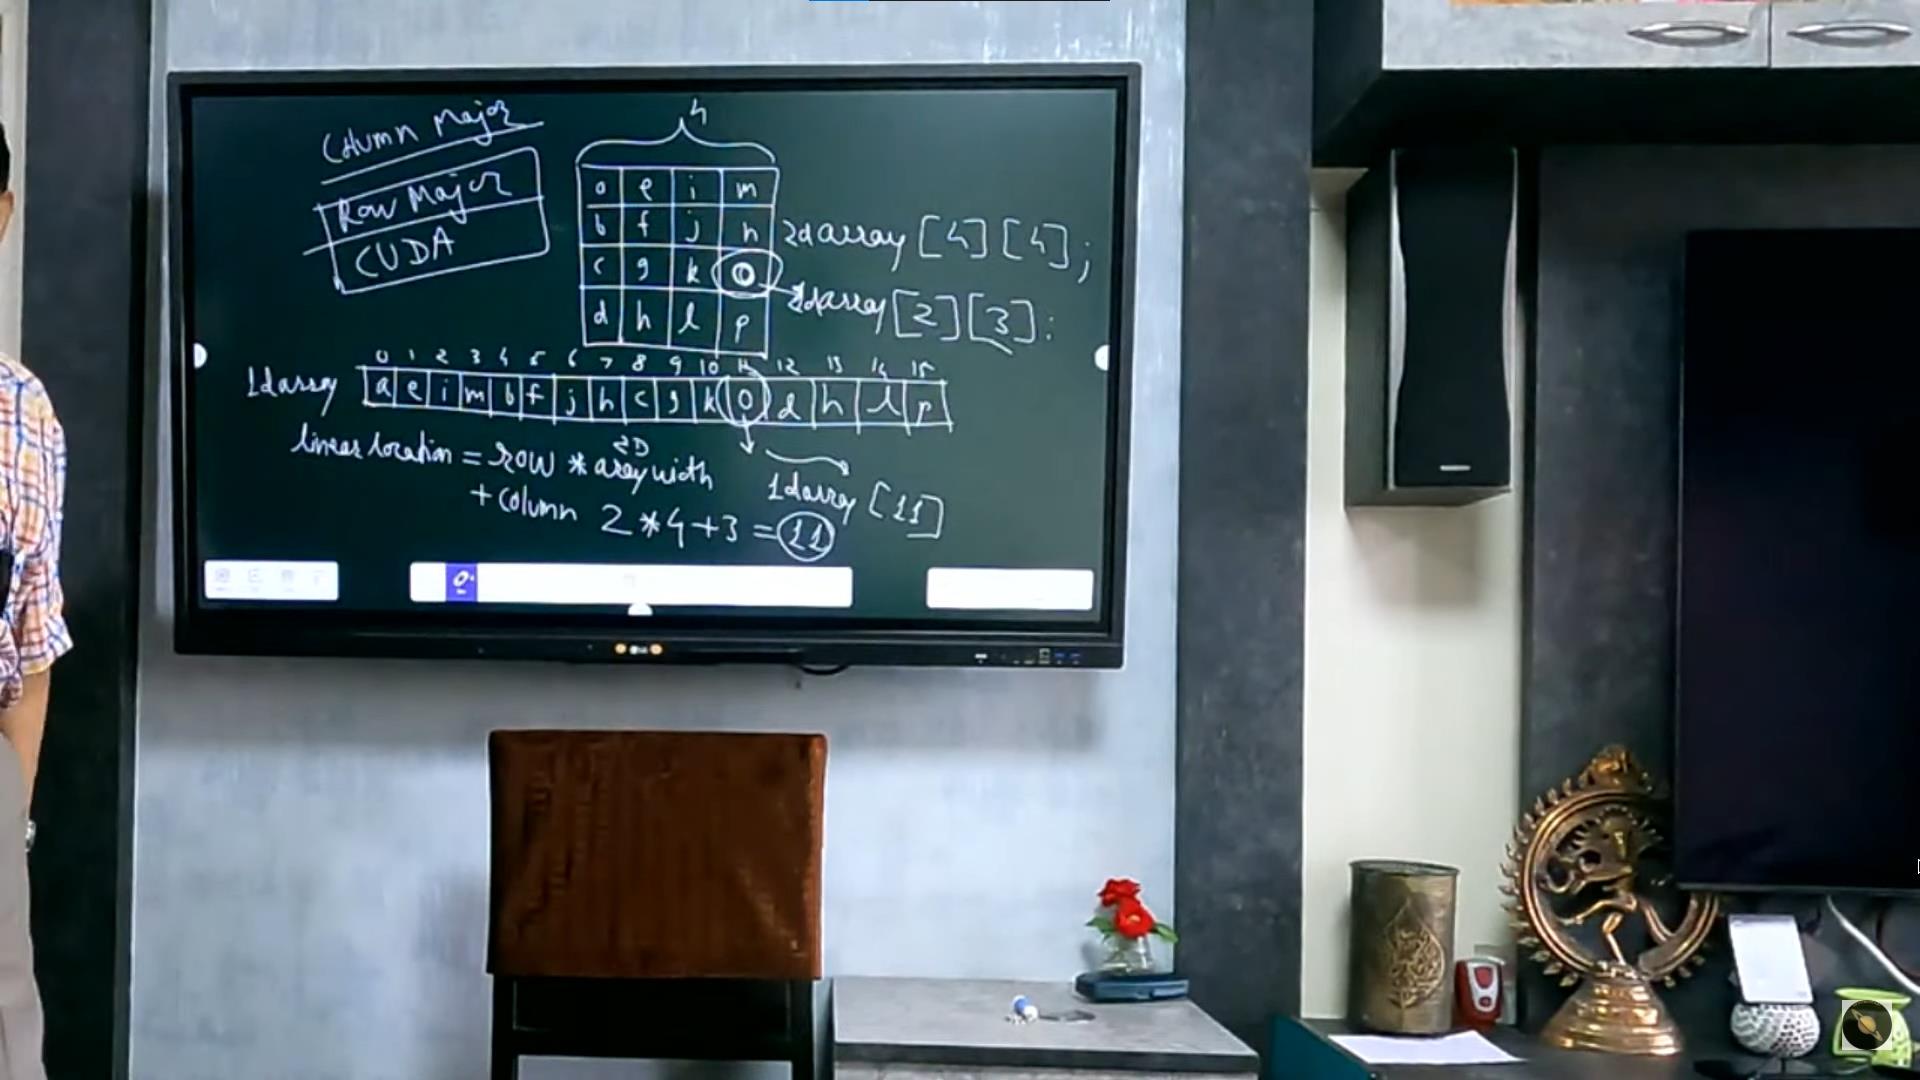 Column Major
Row Major
CUDA
4
a e i m
b f j n
c g k o
d h l p
2darray [4][4];
2darray [2][3]:
0 1 2 3 4 5 6 7 8 9 10 11 12 13 14 15
1darray a e i m b f j n c g k o d h l p
2D
linear location = row * array width
+ column 2 * 4 + 3 = 11
1darray [11]